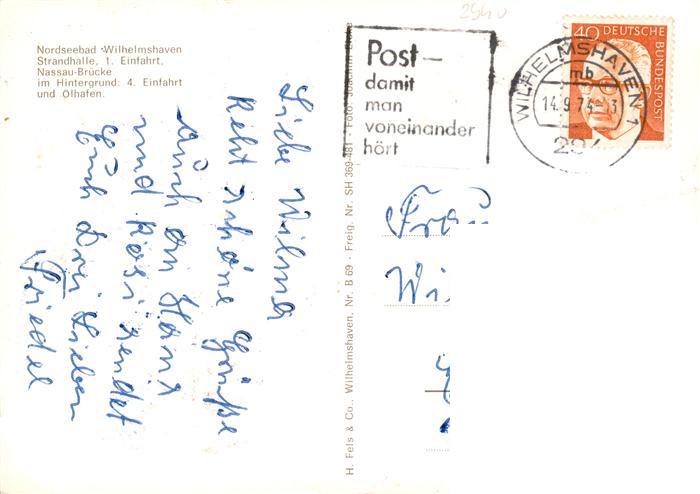 Nordseebad Wilhelmshaven
Strandhalle, 1. Einfahrt,
Nassau-Brücke
im Hintergrund: 4. Einfahrt
und Ölhafen.
Liebe Wilma
Recht schöne Grüße
auch an Heinz
und Rosi sendet
Euch Drei Lieben
Friedel
H. Fels & Co., Wilhelmshaven, Nr. B 69 - Freig. Nr. SH 369-481 - Foto: Joachim
2940
Post-
damit
man
voneinander
hört
WILHELMSHAVEN 1
mb
14.9.74-13
294
40 DEUTSCHE
BUNDESPOST
Frau
Wi